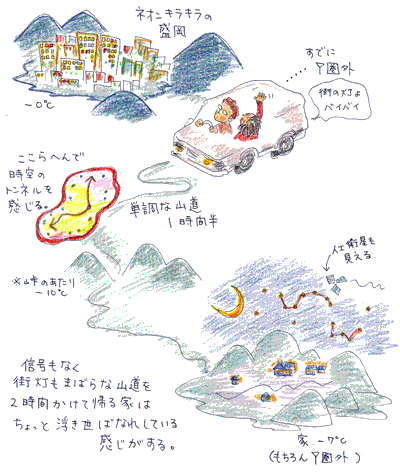 ネオンキラキラの
盛岡
-0℃
すでに
圏外
街の灯よ
バイバイ
ここらへんで
時空の
トンネルを
感じる。
単調な山道
1時間半
※峠のあたり
-10℃
衛星も
見える
信号もなく
街灯もまばらな山道を
2時間かけて帰る家は
ちょっと浮き世ばなれしている
感じがする。
家 -7℃
(もちろん圏外)